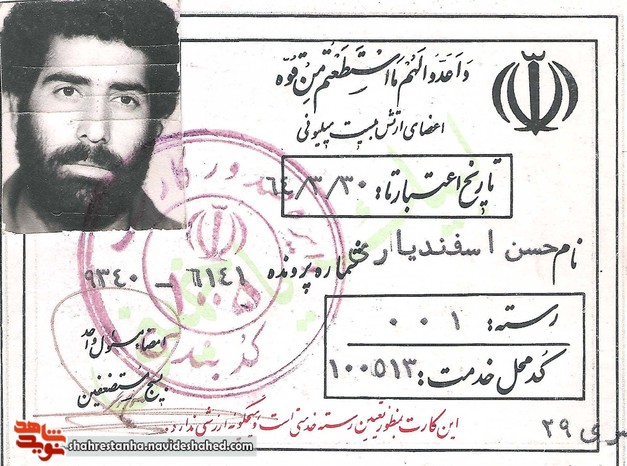 واعدوالهم مااستطعتم من قوّه
اعضای ارتش بیست میلیونی
تاریخ اعتبار تا: ۶۴/۳/۳۰
نام حسن اسفندیاری
شماره پرونده ۶۱۴۱ – ۹۳۴۰
رسته: ۰۰۱
کد محل خدمت: ۱۰۰۵۱۳
امضاء مسئول واحد
بسیج مستضعفین
این کارت بمنظور تعیین رسته خدمتی است و هیچگونه ارزشی ندارد.
سری ۲۹
صدور کارت
۱۰۰۵
کد بندی
نوید شاهد
shahrestanha.navideshahed.com